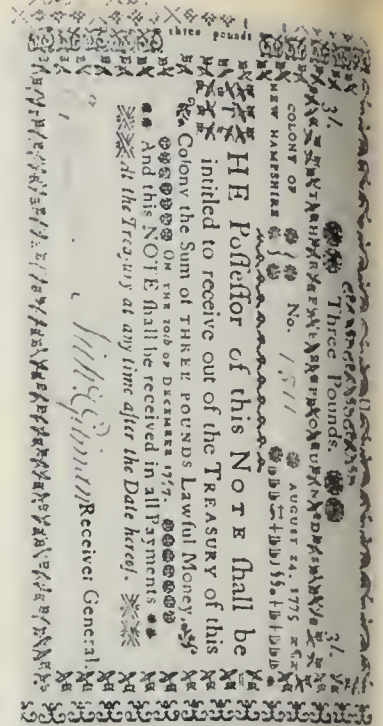 three pounds
3l. Three Pounds. 3l.
COLONY OF
NEW HAMPSHIRE } No. AUGUST 24, 1775
THE Poſſeſſor of this NOTE ſhall be
intitled to receive out of the TREASURY of this
Colony the Sum of THREE POUNDS Lawful Money
ON THE 20th OF DECEMBER
And this NOTE ſhall be received in all Payments
At the Treaſury at any time after the Date hereof.
Gilman Receiver General.